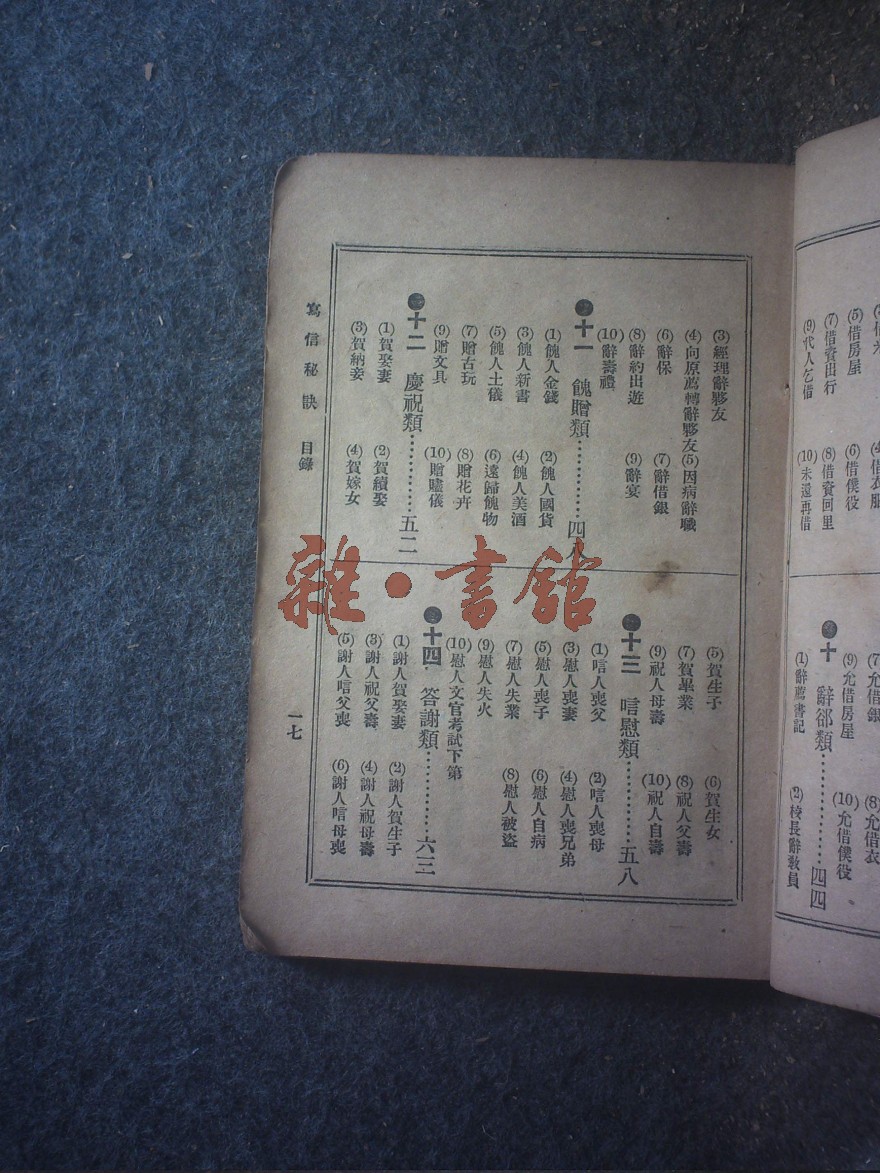 (4)借衣服
(5)借房屋 (6)借僕役
(7)借資出行 (8)借資回里
(9)代人乞借 (10)未還再借
(7)允借銀 (8)允借衣
(9)允借房屋 (10)允借僕役
十 辭卻類…………四四
(1)辭薦書記 (2)校長辭教員
(3)經理辭夥友
(4)向原薦轉辭夥友 (5)因病辭職
(6)辭保 (7)辭借銀
(8)辭約出遊 (9)辭宴
(10)辭壽禮
十一 餽贈類…………四八
(1)餽人金錢 (2)餽人國貨
(3)餽人新書 (4)餽人美酒
(5)餽人土儀 (6)遠歸餽物
(7)贈古玩 (8)贈花卉
(9)贈文具 (10)贈贐儀
十二 慶祝類…………五二
(1)賀娶妻 (2)賀續娶
(3)賀納妾 (4)賀嫁女
(5)賀生子 (6)賀生女
(7)賀畢業 (8)祝人父壽
(9)祝人母壽 (10)祝人自壽
十三 唁慰類…………五八
(1)唁人喪父 (2)唁人喪母
(3)慰人喪妻 (4)慰人喪兄弟
(5)慰人喪子 (6)慰人自病
(7)慰人失業 (8)慰人被盜
(9)慰人失火
(10)慰人文官考試下第
十四 答謝類…………六三
(1)謝人賀娶妻 (2)謝人賀生子
(3)謝人祝父壽 (4)謝人祝母壽
(5)謝人唁父喪 (6)謝人唁母喪
寫信秘訣 目錄
一七
雜·書館